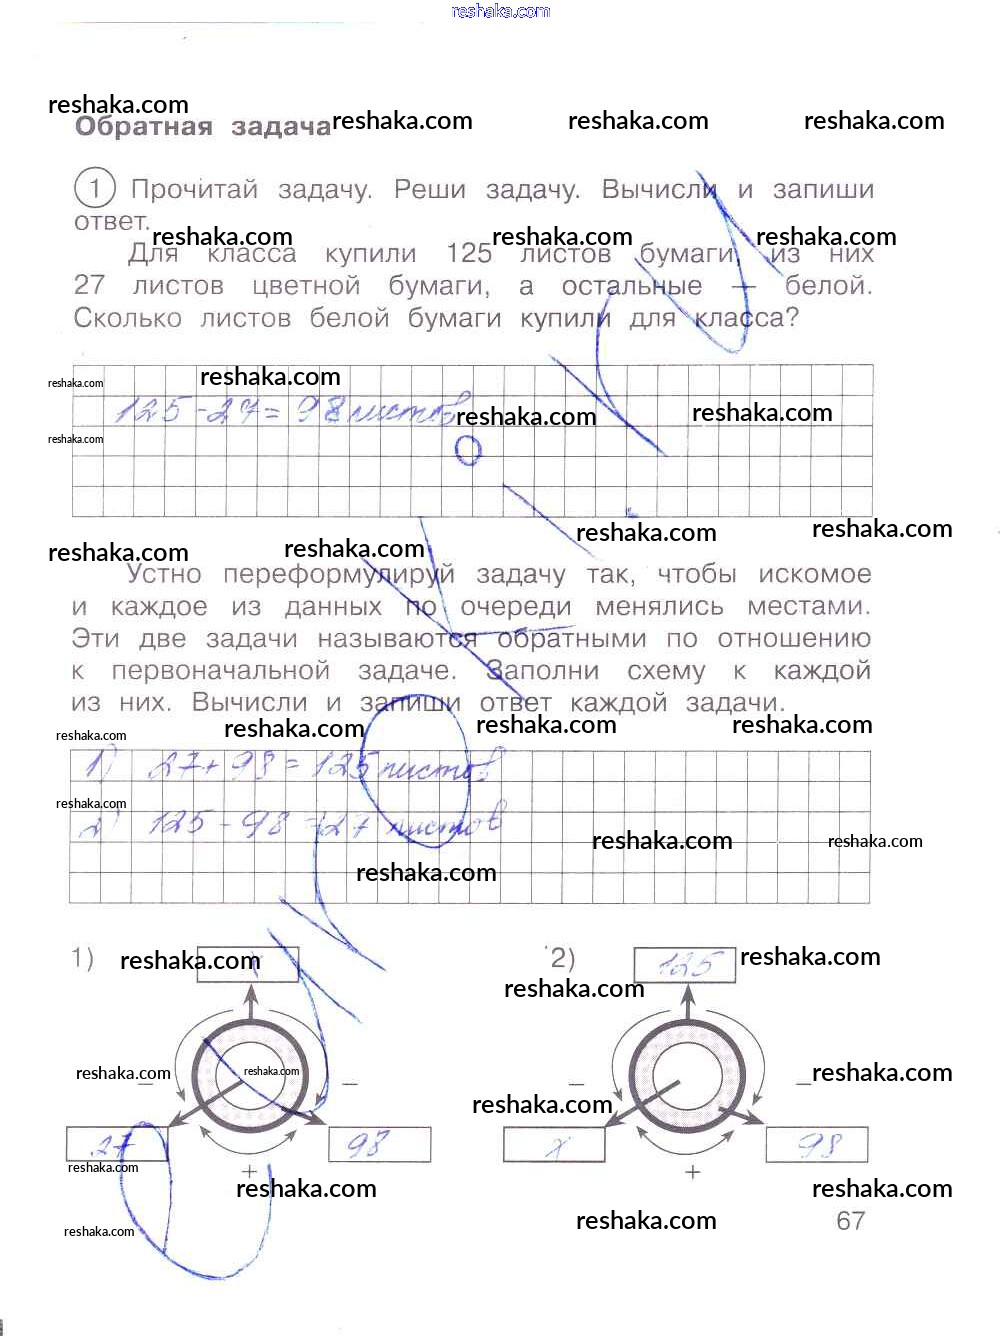 reshaka.com
reshaka.com
Обратная задача
reshaka.com reshaka.com reshaka.com
1 Прочитай задачу. Реши задачу. Вычисли и запиши
ответ.
reshaka.com reshaka.com reshaka.com
Для класса купили 125 листов бумаги, из них
27 листов цветной бумаги, а остальные — белой.
Сколько листов белой бумаги купили для класса?
reshaka.com reshaka.com
125 - 27 = 98 листов
reshaka.com reshaka.com
reshaka.com
reshaka.com reshaka.com
reshaka.com reshaka.com
Устно переформулируй задачу так, чтобы искомое
и каждое из данных по очереди менялись местами.
Эти две задачи называются обратными по отношению
к первоначальной задаче. Заполни схему к каждой
из них. Вычисли и запиши ответ каждой задачи.
reshaka.com reshaka.com reshaka.com
reshaka.com
1) 27 + 98 = 125 листов
reshaka.com
2) 125 - 98 = 27 листов
reshaka.com reshaka.com
reshaka.com
1) reshaka.com 2) 125 reshaka.com
reshaka.com
reshaka.com reshaka.com reshaka.com
− − − −
reshaka.com
27 98 x 98
reshaka.com
+ +
reshaka.com reshaka.com
reshaka.com reshaka.com 67